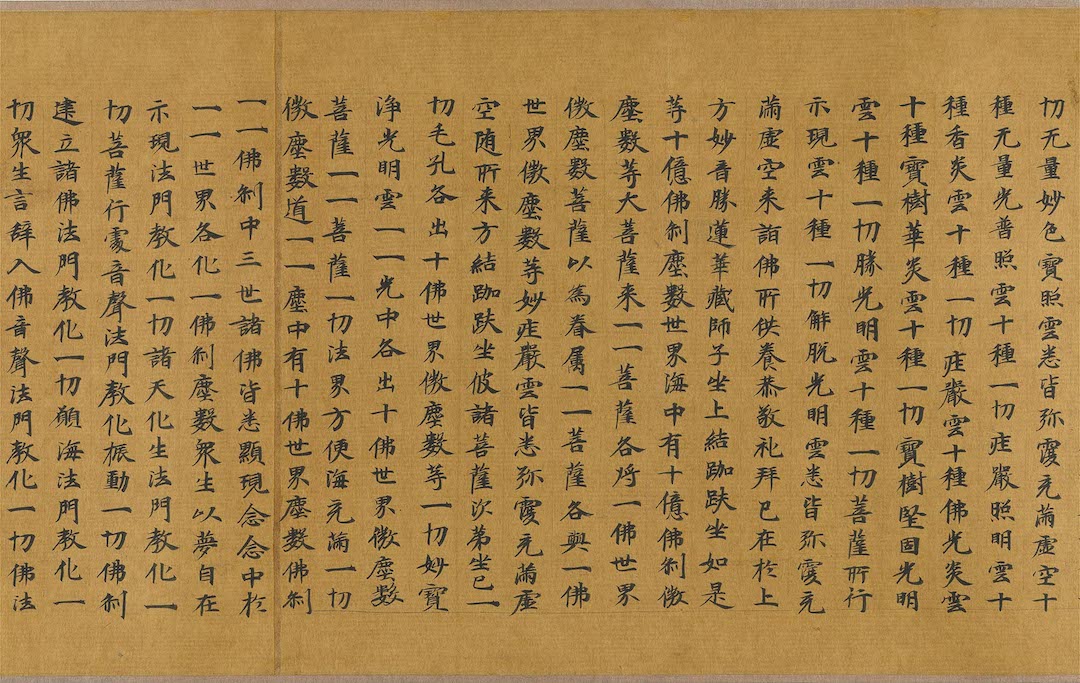 切无量妙色寶照雲悉皆弥覆充滿虛空十
種无量光普照雲十種一切莊嚴照明雲十
種香炎雲十種一切莊嚴雲十種佛光炎雲
十種寶樹華炎雲十種一切寶樹堅固光明
雲十種一切勝光明雲十種一切菩薩所行
示現雲十種一切解脫光明雲悉皆弥覆充
滿虛空来詣佛所供養恭敬礼拜已在於上
方妙音勝蓮華藏師子坐上結跏趺坐如是
等十億佛刹塵數世界海中有十億佛刹微
塵數等大菩薩来一一菩薩各将一佛世界
微塵數菩薩以為眷属一一菩薩各興一佛
世界微塵數等妙莊嚴雲皆悉弥覆充滿虛
空随所来方結跏趺坐彼諸菩薩次苐坐已一
切毛孔各出十佛世界微塵數等一切妙寶
淨光明雲一一光中各出十佛世界微塵數
菩薩一一菩薩一切法界方便海充滿一切
微塵數道一一塵中有十佛世界塵數佛刹
一一佛刹中三世諸佛皆悉顯現念念中於
一一世界各化一佛刹塵數眾生以夢自在
示現法門教化一切諸天化生法門教化一
切菩薩行處音聲法門教化振動一切佛刹
建立諸佛法門教化一切願海法門教化一
切眾生言辭入佛音聲法門教化一切佛法